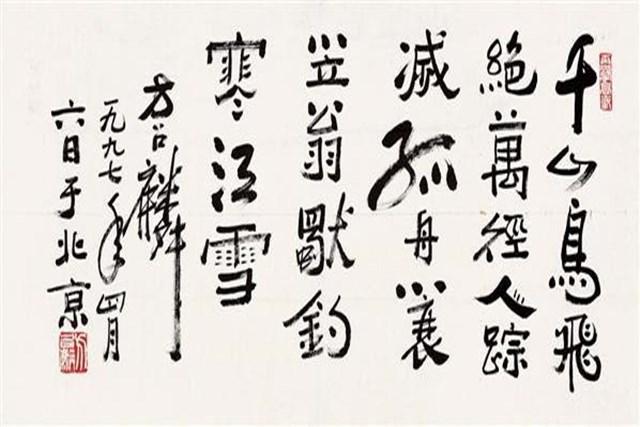 千山鳥飛
絕萬徑人踪
滅孤舟蓑
笠翁獨釣
寒江雪
方召麟
一九九七年四月
六日于北京